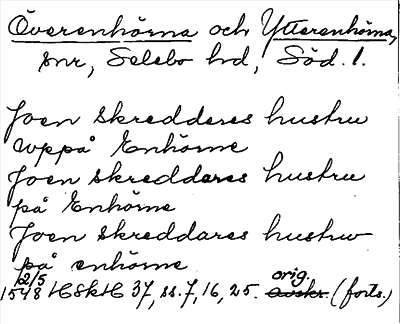 Överenhörna och Ytterenhörna,
snr, Selebo hd, Söd. l.
Joen skredderes hustru
uppå Enhörne
Joen skreddares hustru
på Enhörne
Joen skreddares hustrw
på enhörne
12/5 orig.
1548 HSkH 37, ss. 7, 16, 25. Avskr. (forts.)